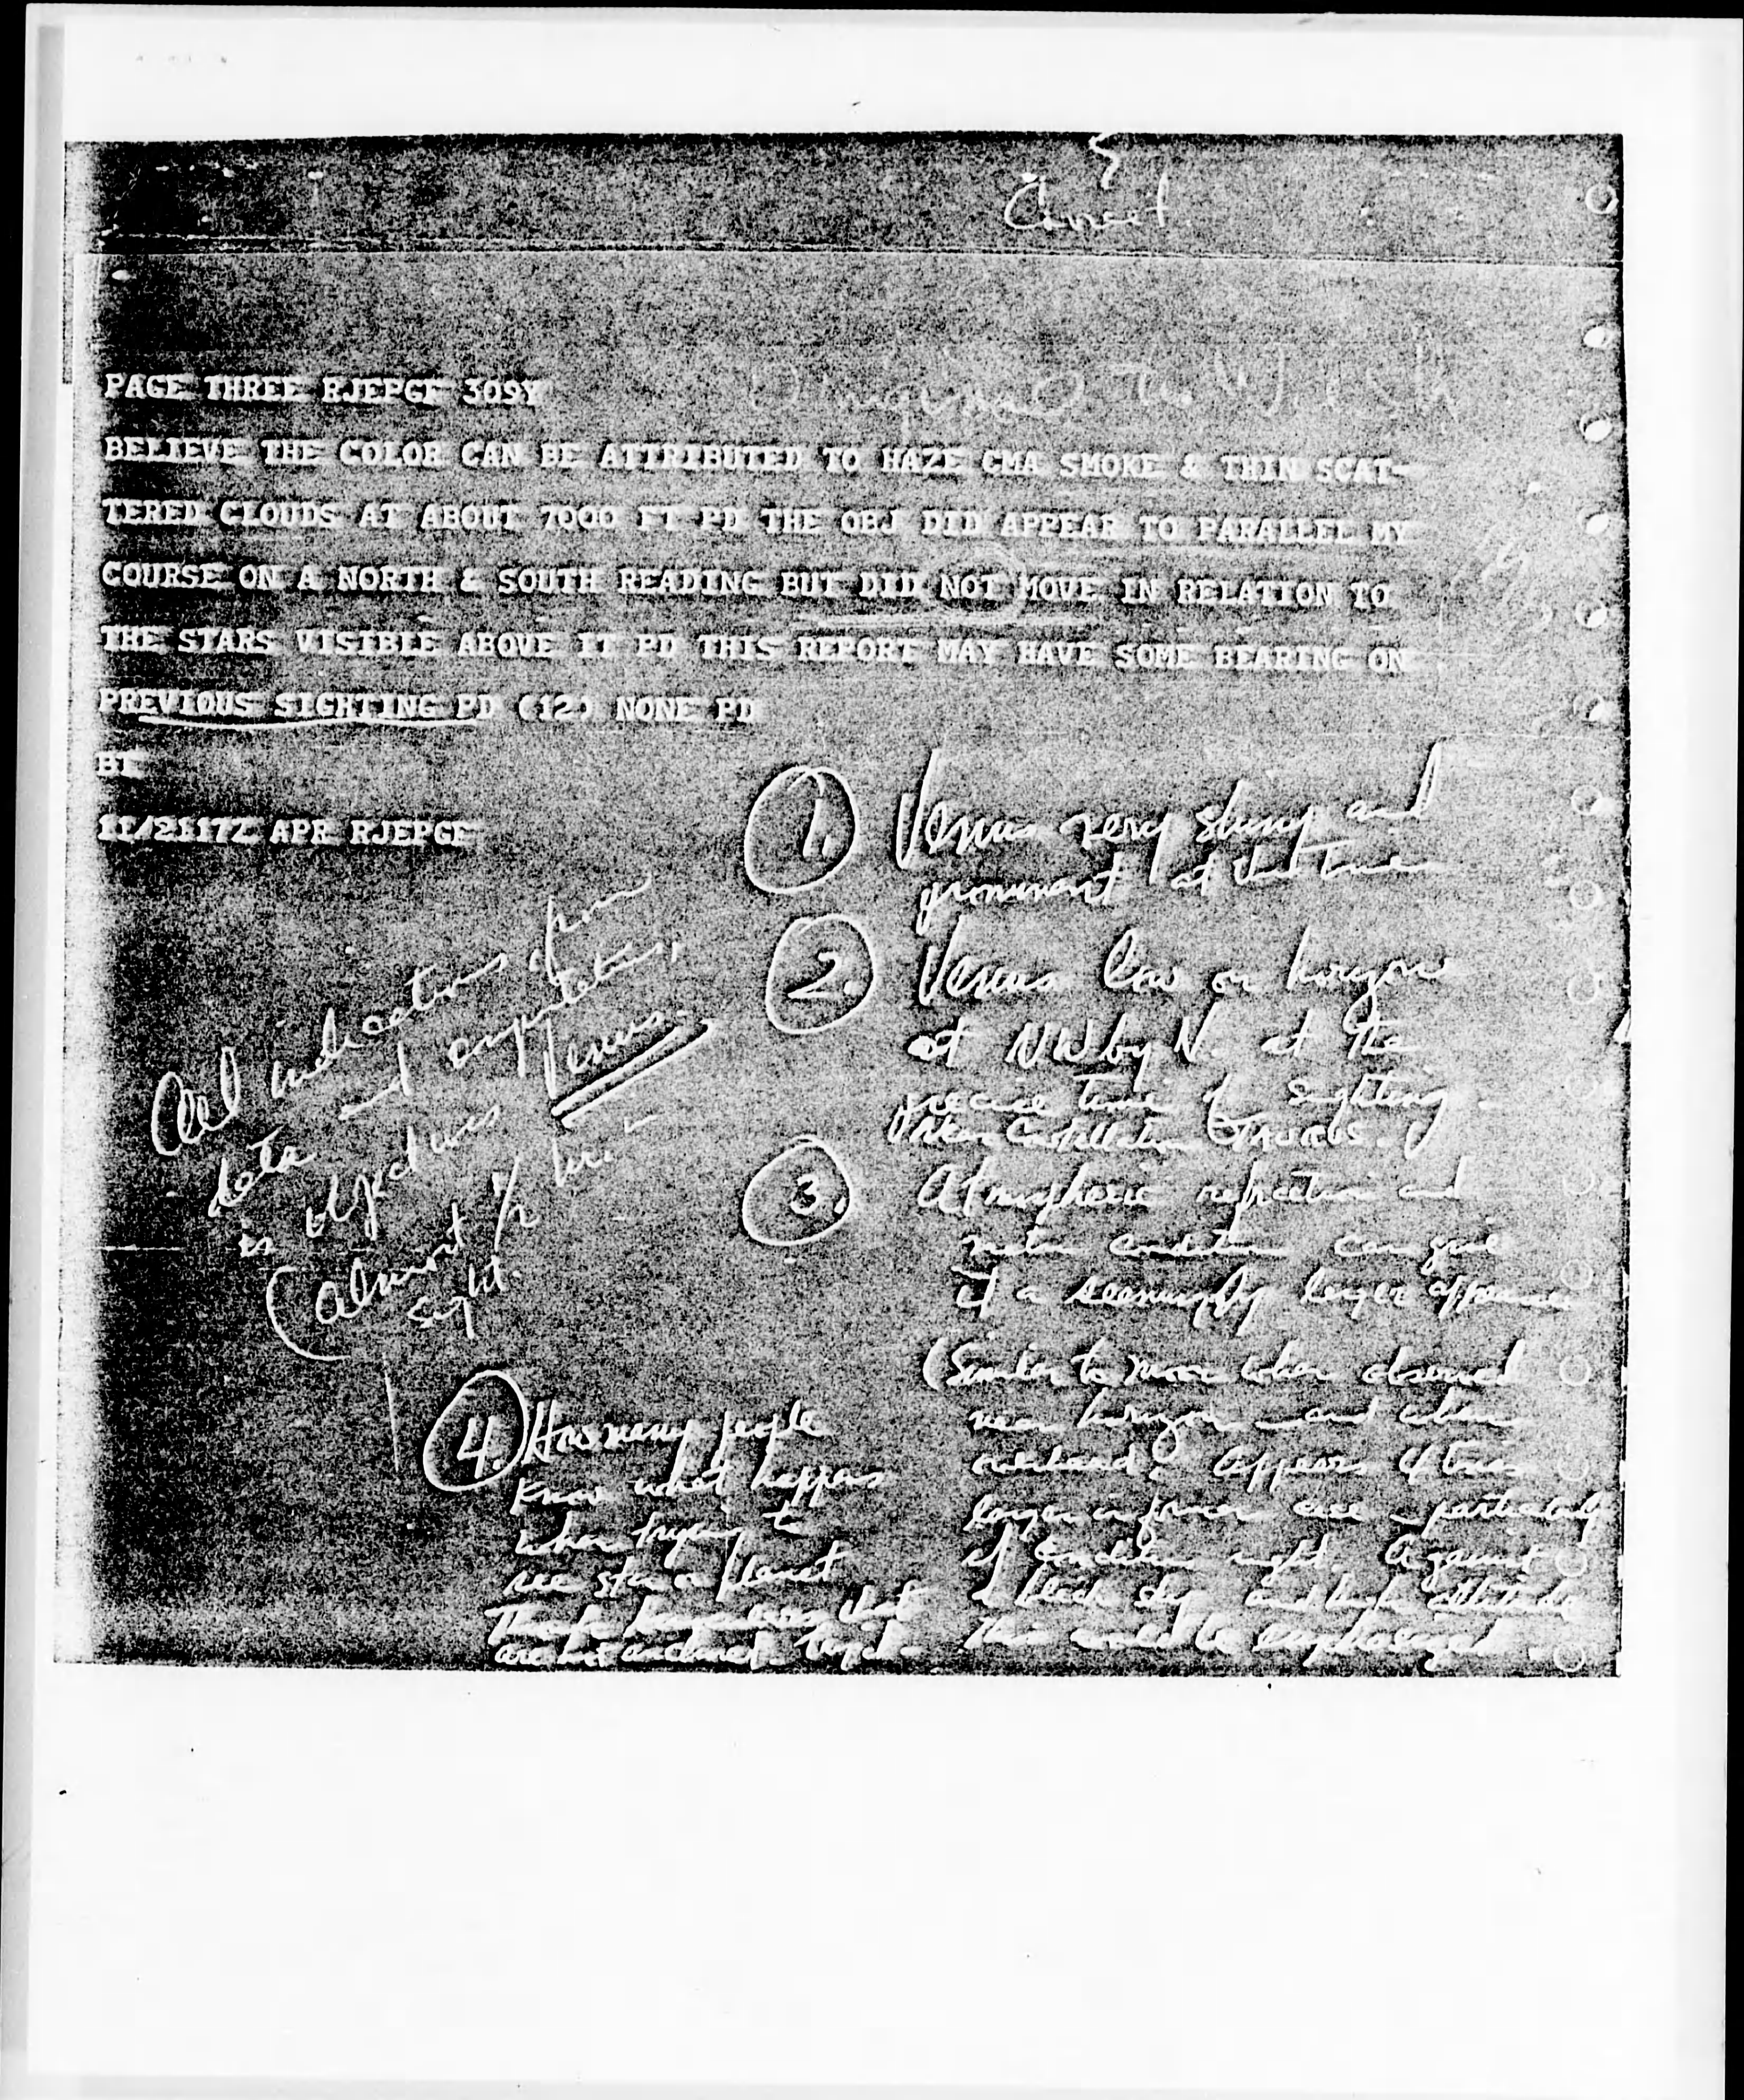 PAGE THREE RJEPGF 309Y
BELIEVE THE COLOR CAN BE ATTRIBUTED TO HAZE CMA SMOKE & THIN SCAT-
TERED CLOUDS AT ABOUT 7000 FT PD THE OBJ DID APPEAR TO PARALLEL MY
COURSE ON A NORTH & SOUTH READING BUT DID NOT MOVE IN RELATION TO
THE STARS VISIBLE ABOVE IT PD THIS REPORT MAY HAVE SOME BEARING ON
PREVIOUS SIGHTING PD (12) NONE PD
BT
11/2117Z APR RJEPGF
All indications from
data and computations,
is object was Venus.
(almost 1/2 hr. –
sight.
1. Venus very sharp and
prominent at this time
2. Venus low on horizon
at NW by N. at the
precise time of sighting.
Constellation TAURUS.
3. Atmospheric refraction and
condition can give
it a seemingly larger appearance
(Similar to moon when observed
near horizon and when
overhead. Appears 4 times
larger in former case – particularly
if condition right. Against
a black sky and high altitude
this would be emphasized.
4. How many people
know what happens
when trying to
see star or planet
are not